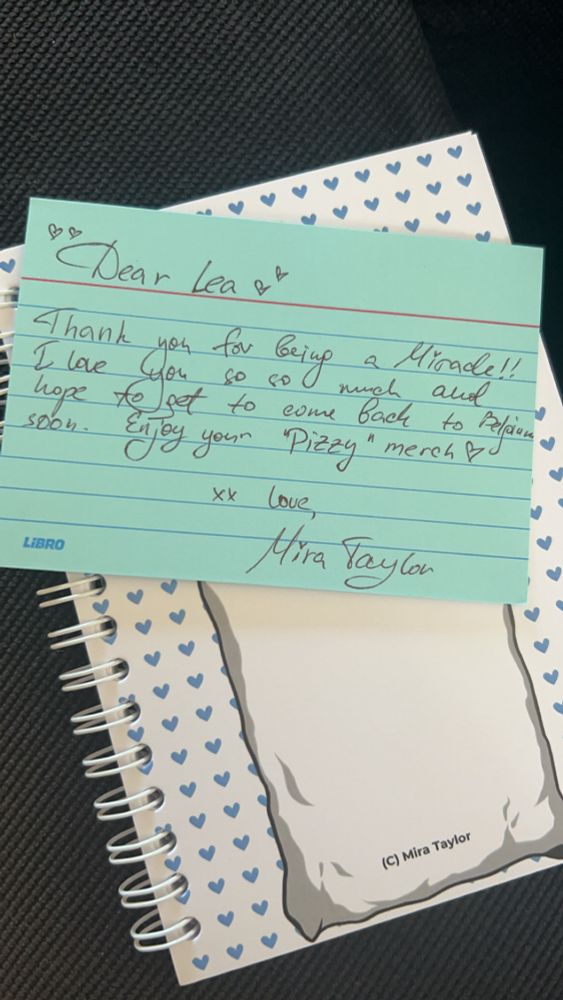 Dear Lea
Thank you for being a Miracle!!
I love you so so much and
hope to get to come back to Belgium
soon. Enjoy your "Pizzy" merch
xx love,
Mira Taylor
LiBRO
(C) Mira Taylor